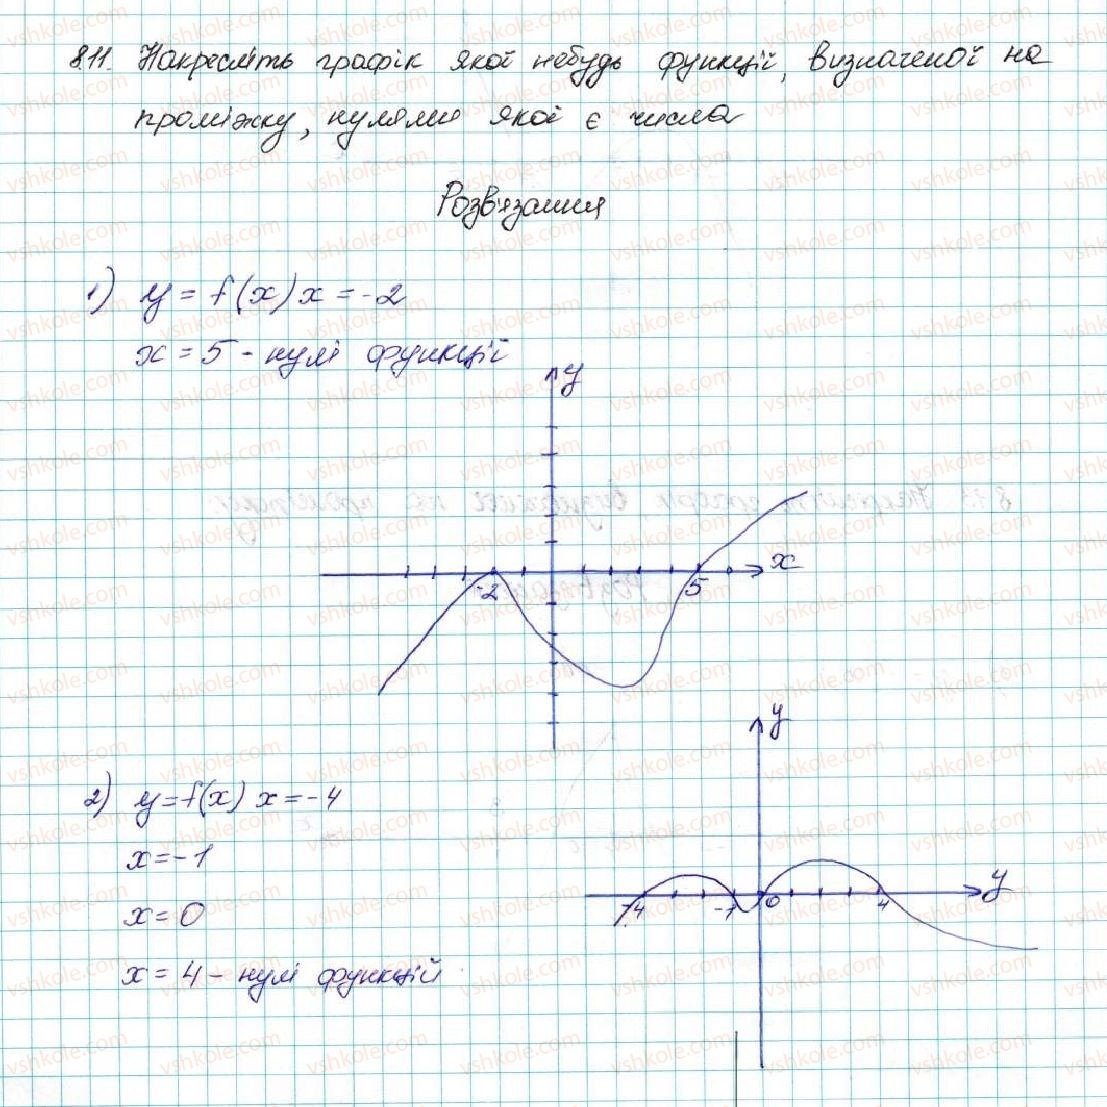 8.11. Накресліть графік якої небудь функції, визначеної на
проміжку, нулями якої є числа
Розв'язання
1) y = f(x) x = -2
x = 5 - нулі функцій
y
x
-2
5
2) y = f(x) x = -4
x = -1
x = 0
x = 4 - нулі функцій
y
y
-4
-1
0
4
vshkole.com